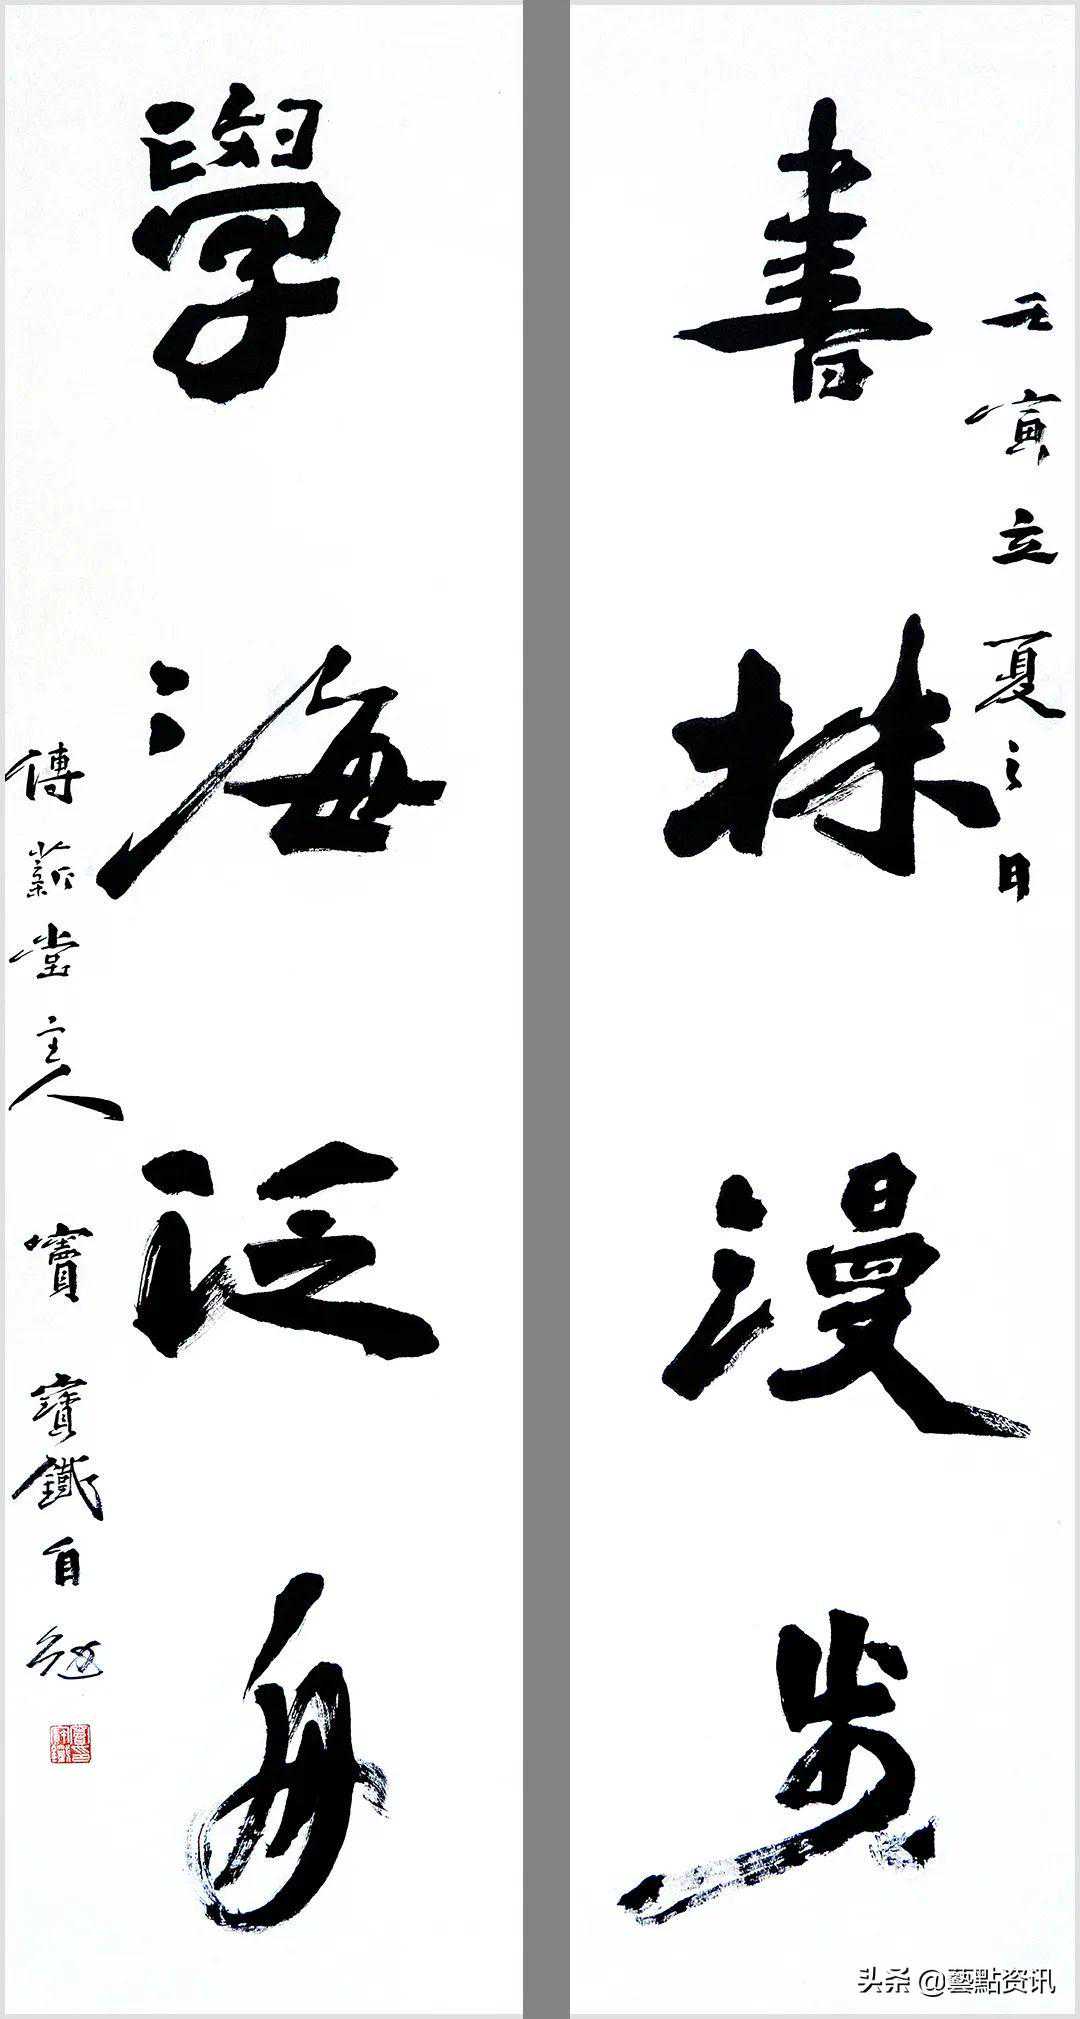 壬寅立夏之日
書林漫步
學海泛舟
傳薪堂主人 竇寶鐵自勉
头条 @藝點资讯